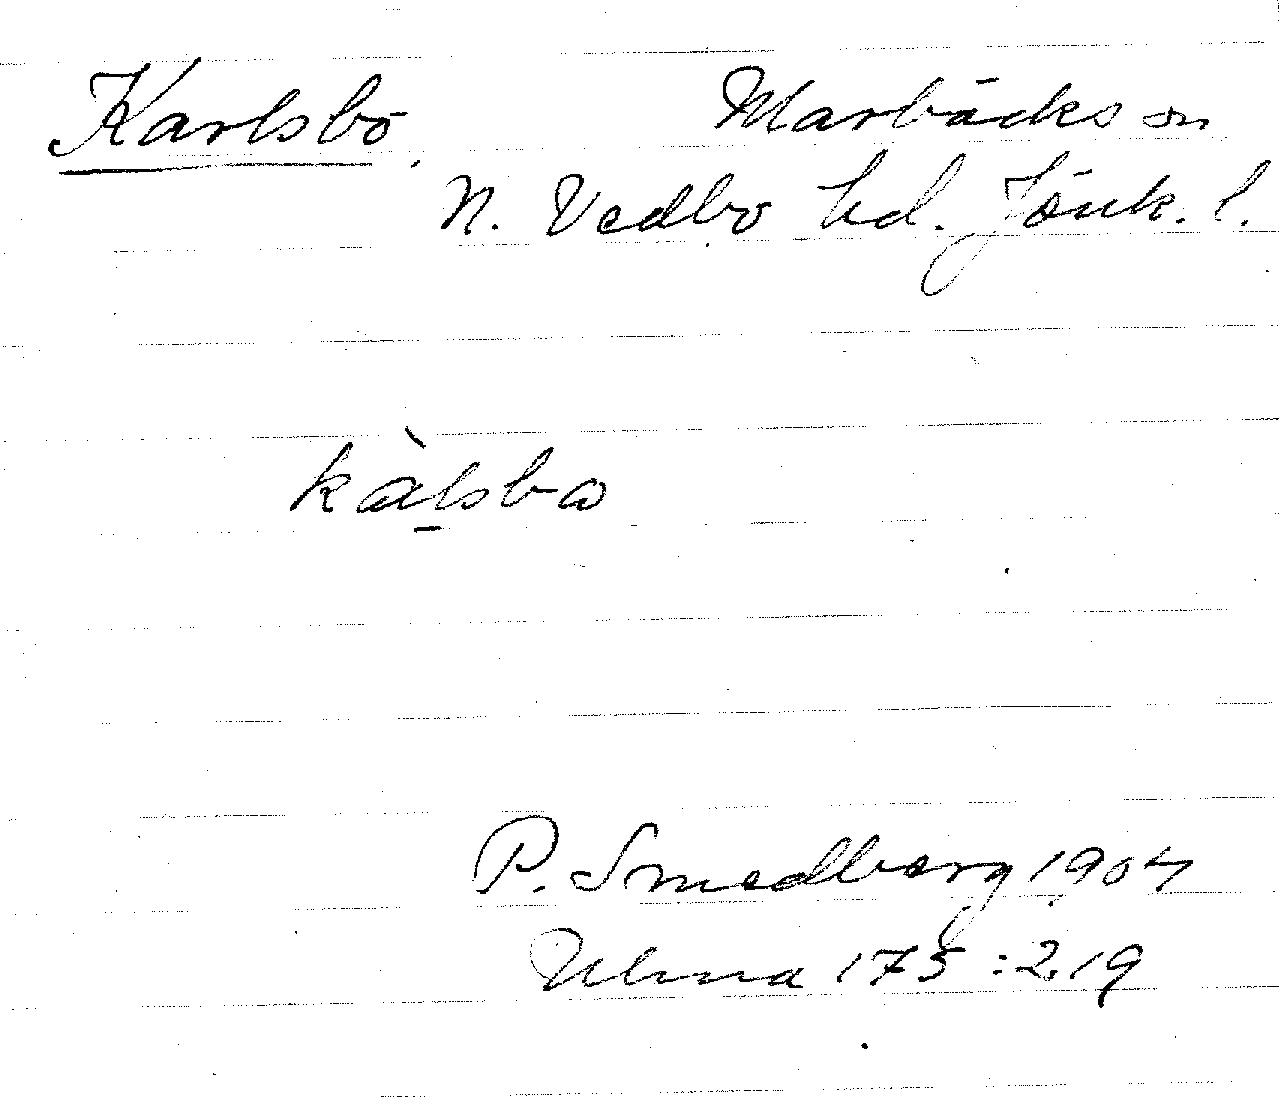 Karlsbo, Marbäcks sn
N. Vedbo hd. Jönk. l.
kàlsbω
P. Smedberg 1904
Ulma 175:219